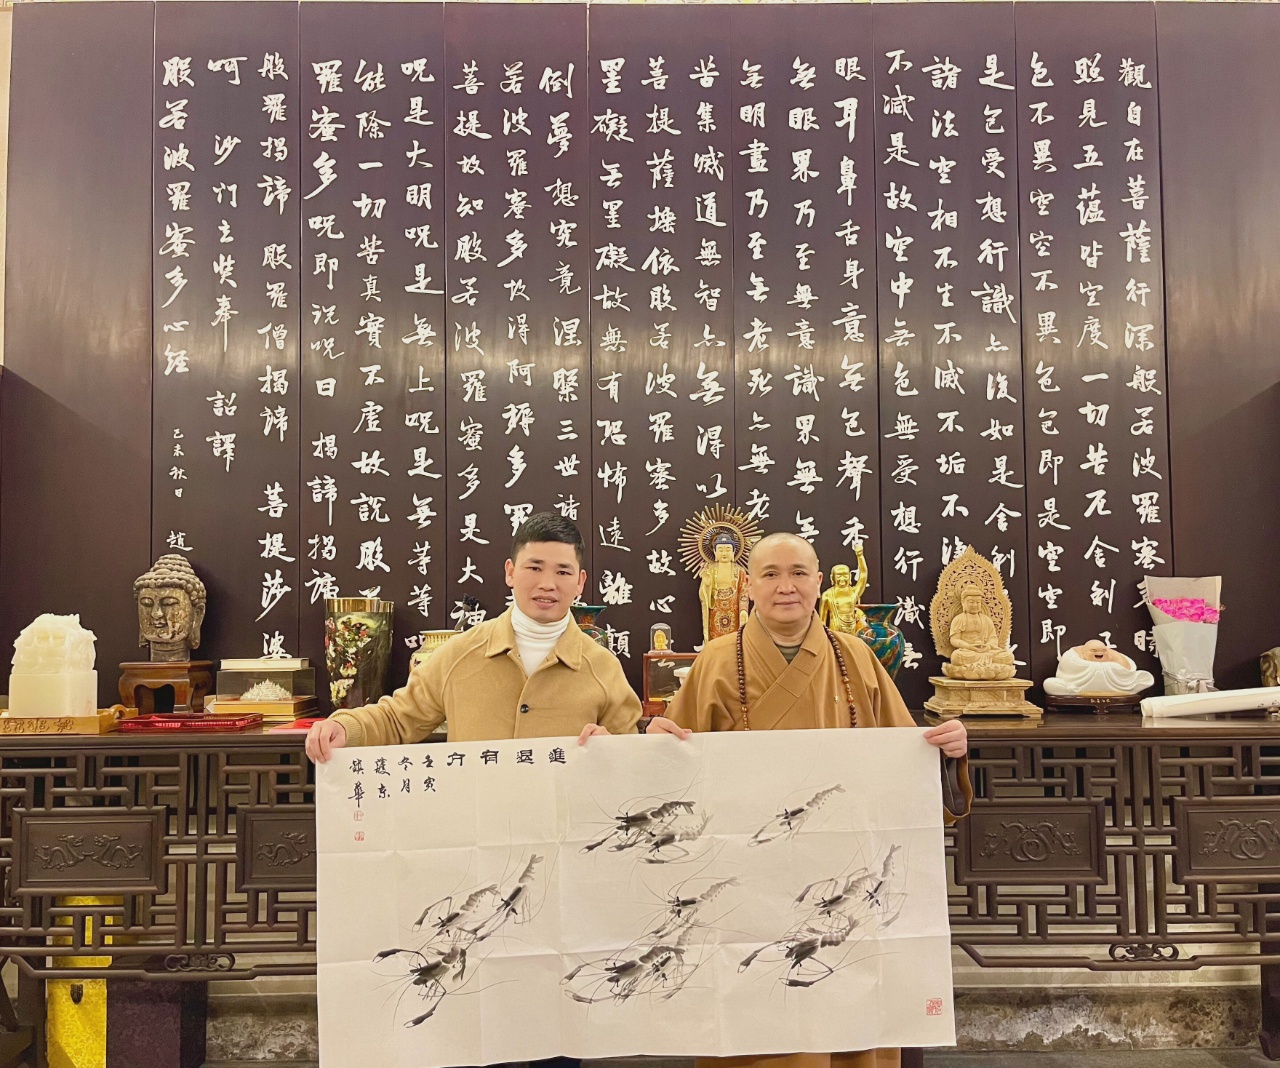 觀自在菩薩行深般若波羅蜜多時
照見五蘊皆空度一切苦厄舍利子
色不異空空不異色色即是空空即
是色受想行識亦復如是舍利
諸法空相不生不滅不垢不淨
不減是故空中無色無受想行識無
眼耳鼻舌身意無色聲香
無眼界乃至無意識界無無
無明盡乃至無老死亦無老
苦集滅道無智亦無得以
菩提薩埵依般若波羅蜜多故心
罣礙無罣礙故無有恐怖遠離顛
倒夢想究竟涅槃三世諸
若波羅蜜多故得阿耨多羅
菩提故知般若波羅蜜多是大神
呪是大明呪是無上呪是無等等呪
能除一切苦真實不虛故說般若
羅蜜多呪即說呪曰 揭諦揭諦
般羅揭諦 般羅僧揭諦 菩提莎婆
呵 沙門玄奘奉 詔譯
般若波羅蜜多心經 己未秋日 趙
進退有方
壬寅
冬月
東
鎮華